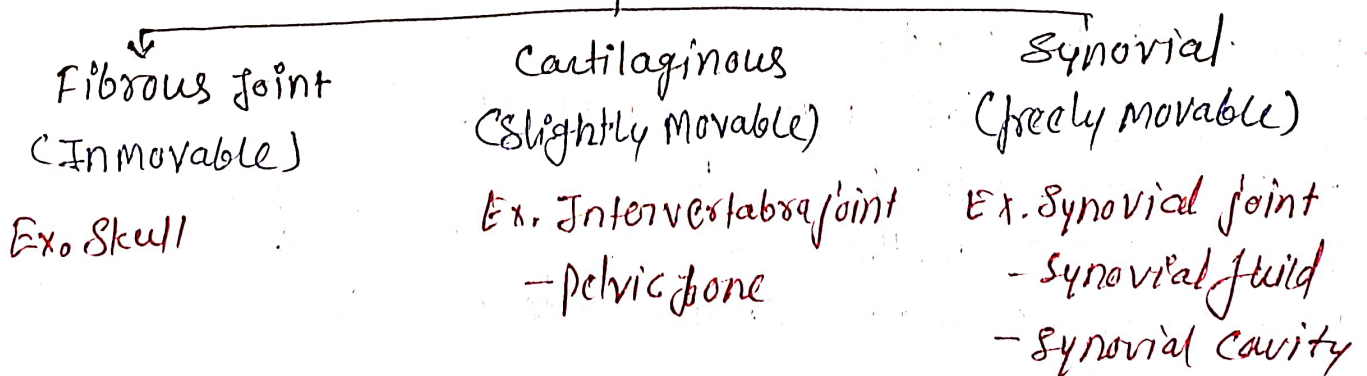 Fibrous Joint
(Inmovable)
Exo Skull
Cartilaginous
(Slightly Movable)
Ex. Intervertabra joint
- Pelvic bone
Synovial
(freely movable)
Ex. Synovial joint
- Synovial fluid
- Synovial Cavity